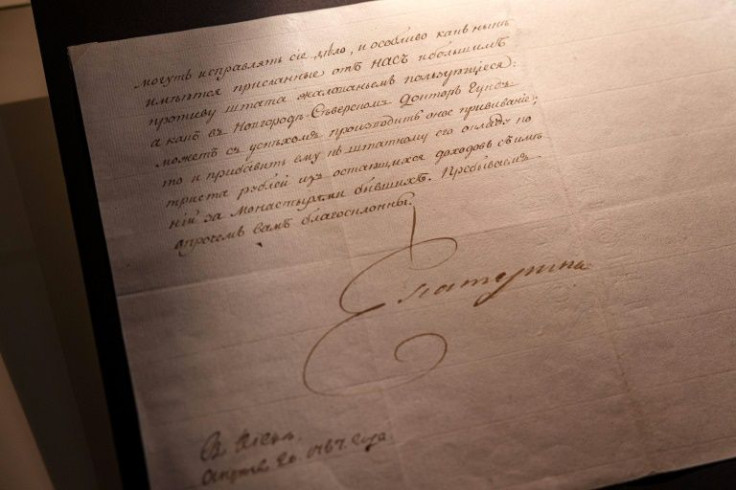 могутъ исправлять сіе дѣло, и особливо какъ нынѣ
имѣются присланные отъ НАСЪ
противу штата жалованьемъ пользующіеся;
а какъ въ Новгородѣ-Сѣверскомъ Докторъ
можетъ съ успѣхомъ производить оное прививаніе;
то и прибавить ему къ штатному его окладу по
триста рублей изъ остающихся доходовъ съ имѣ
ній за Монастырями бывшихъ. Пребываемъ
впрочемъ вамъ благосклонны.
Екатерина
Апрѣля 20. 1787 года.